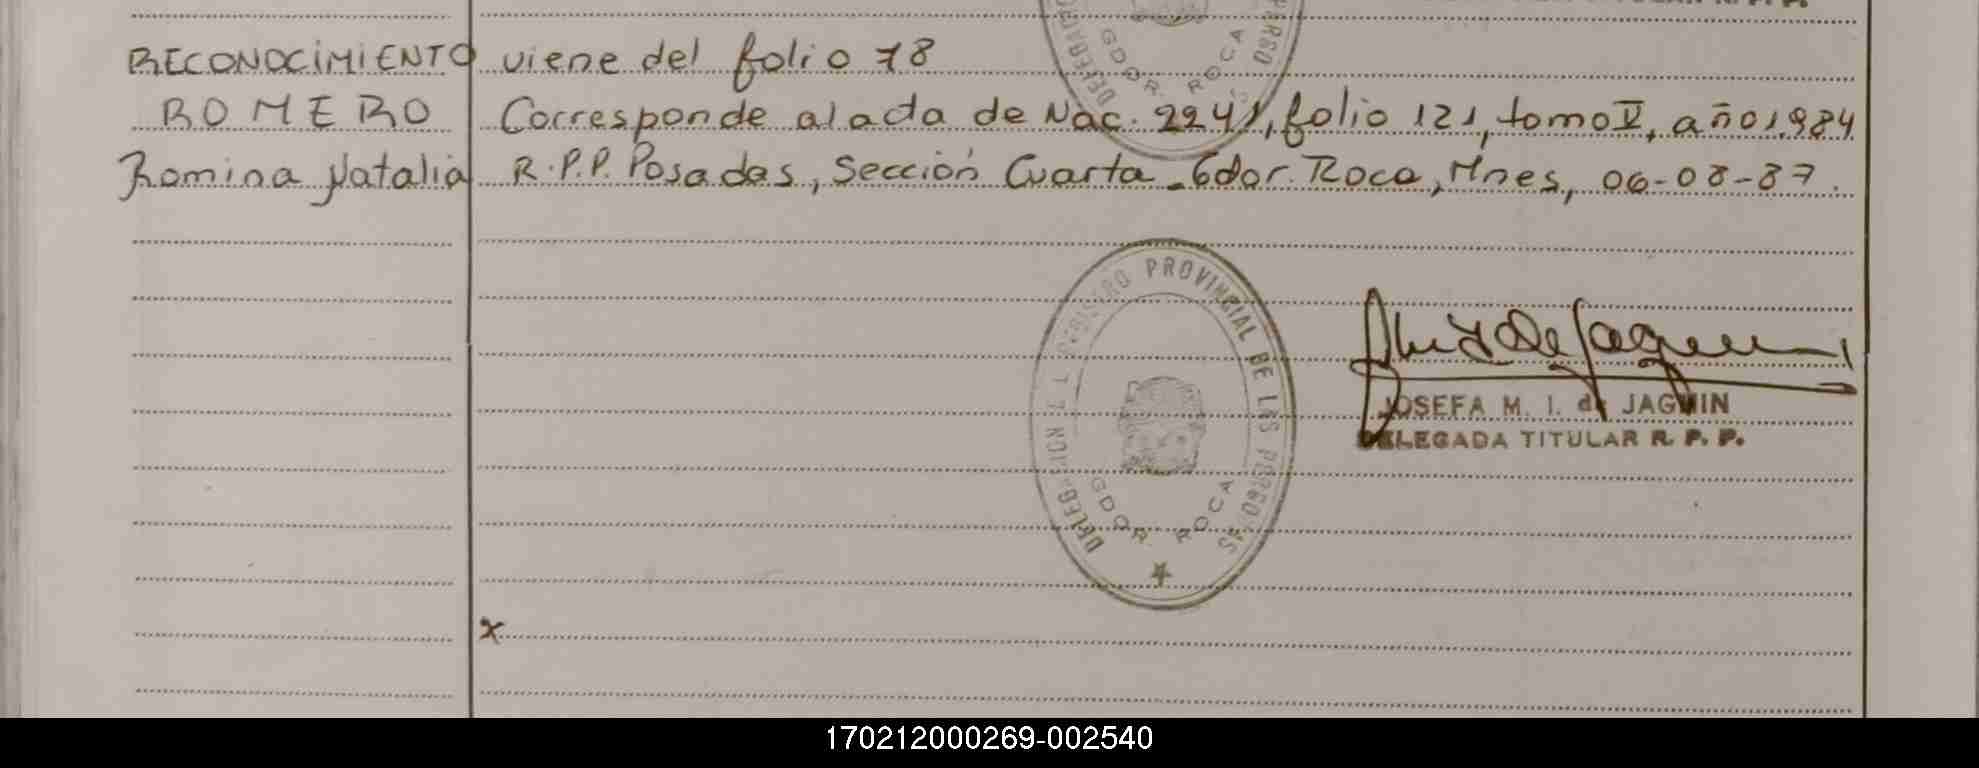 RECONOCIMIENTO viene del folio 78
ROMERO Corresponde al acta de Nac. 2241, folio 121, tomo V, año 1.984
Romina Natalia R.P.P. Posadas, Sección Cuarta - Gdor. Roca, Mnes, 06-08-87.
REGISTRO PROVINCIAL DE LAS PERSONAS
DELEGACION
GDOR. ROCA
JOSEFA M. I. de JAGMIN
DELEGADA TITULAR R. P. P.
x
170212000269-002540